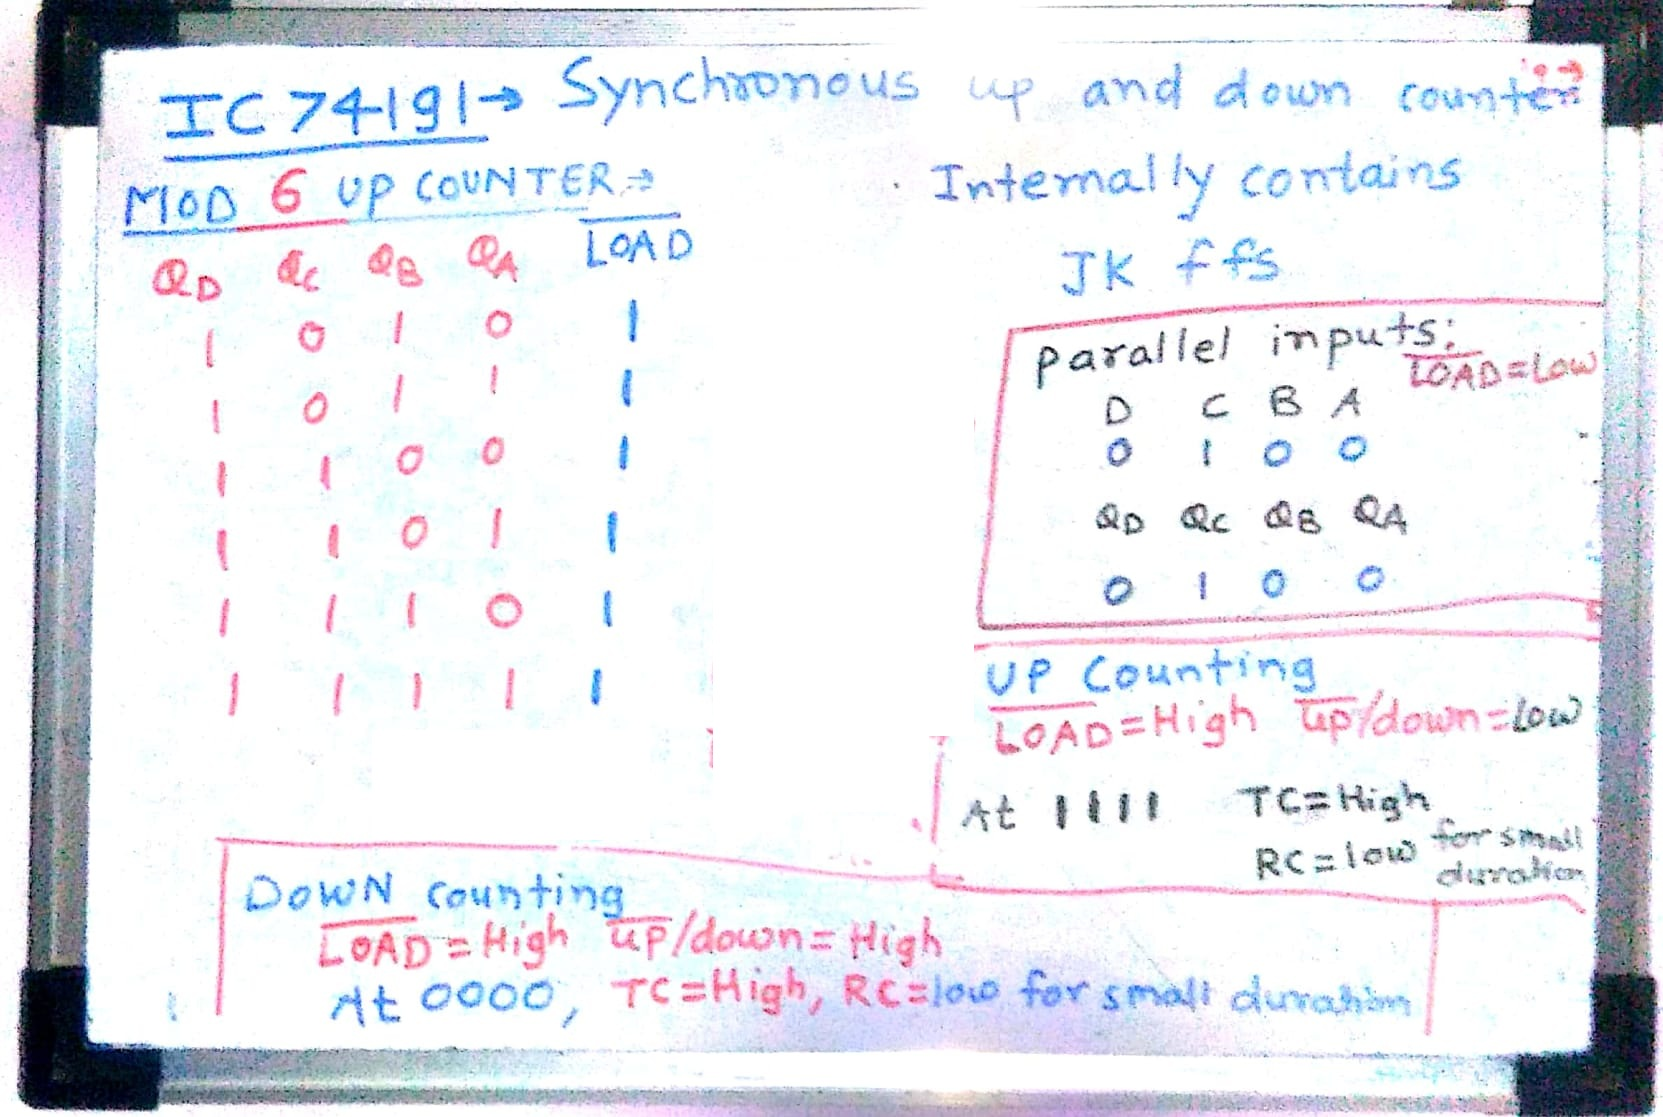 IC 74191→ Synchronous up and down counter
MOD 6 UP COUNTER→
QD QC QB QA LOAD
1 0 1 0 1
1 0 1 1 1
1 1 0 0 1
1 1 0 1 1
1 1 1 0 1
1 1 1 1 1
Internally contains
JK ffs
parallel inputs:
LOAD=Low
D C B A
0 1 0 0
QD QC QB QA
0 1 0 0
UP Counting
LOAD=High up/down=Low
At 1111 TC=High
RC=low for small
duration
DOWN counting
LOAD=High up/down=High
At 0000, TC=High, RC=low for small duration